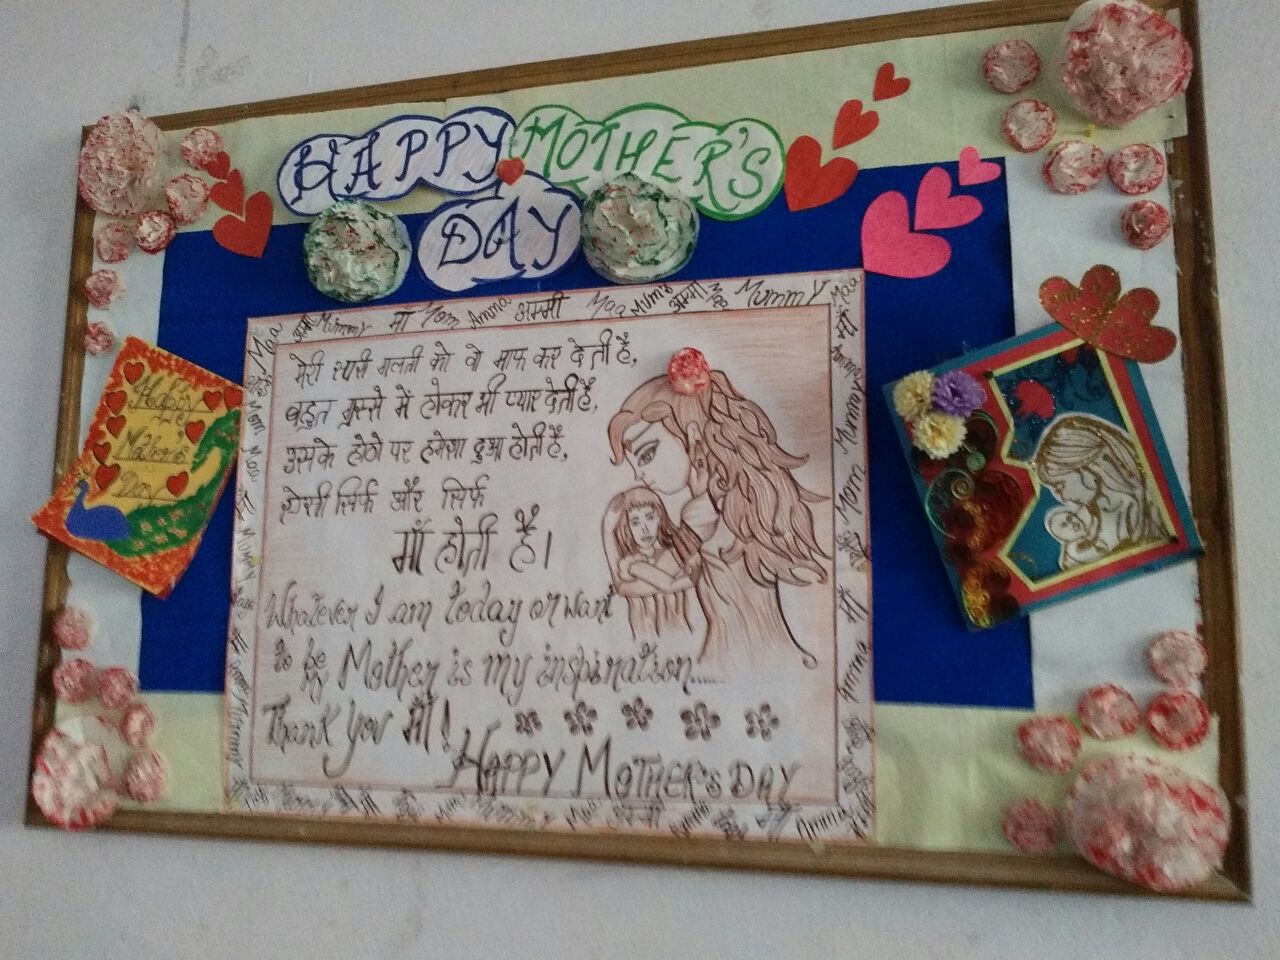 HAPPY MOTHER'S
DAY
Maa अम्मी Mummy माँ Mom Amma अम्मी Maa Mum's अम्मी Maa Mummy
मेरी सारी गलती को वो माफ कर देती है,
बहुत गुस्से में होकर भी प्यार देती है,
उसके होठो पर हमेशा दुआ होती है,
ऐसी सिर्फ और सिर्फ
माँ होती है।
Whatever I am today or want
to be my Mother is my inspiration.....
Thank You माँ!
HAPPY MOTHER'S DAY
Happy
Mother's
Day